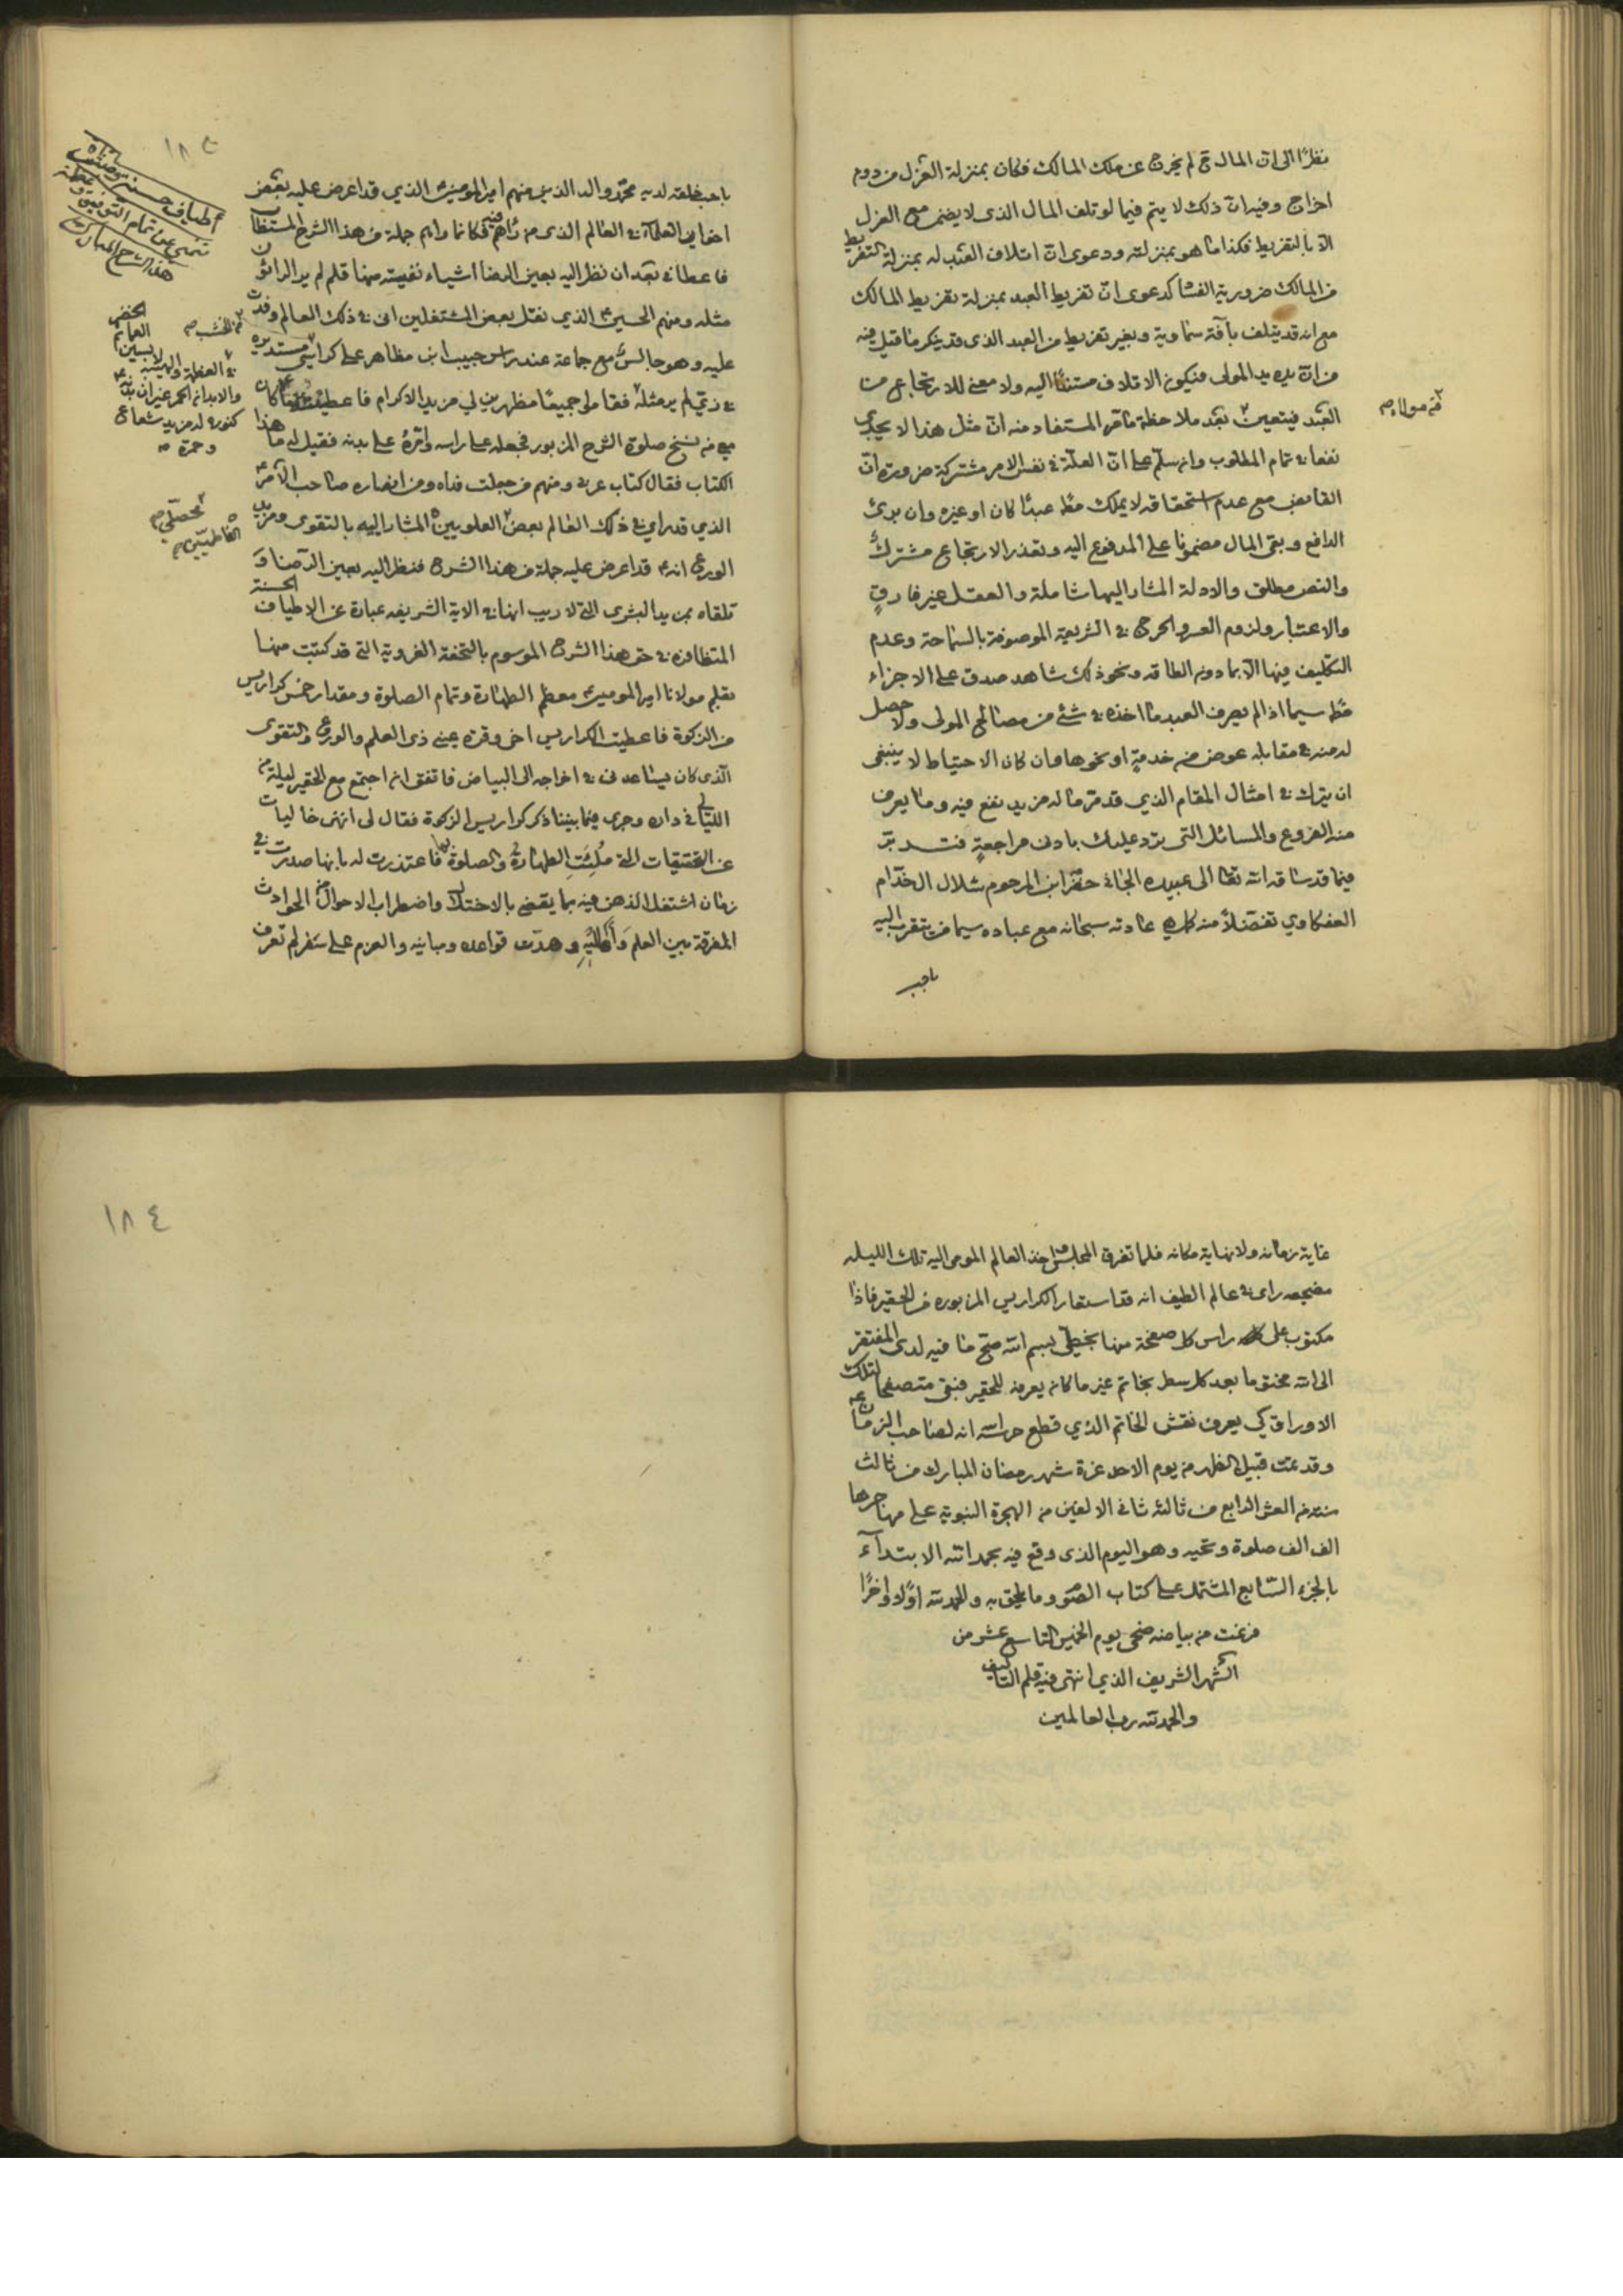 نظرًا الى ان المال ح لم يخرج عن ملك المالك فكان بمنزلة العزل من دون
اخراج وفيه ان ذلك لا يتم فيما لو تلف المال الذى لا يضمن مع العزل
الا بالتفريط فكذا ما هو بمنزلته ودعوى ان اتلاف العبد له بمنزلة التفريط
من المالك ضرورية الفساد كدعوى ان تفريط العبد بمنزلة تفريط المالك
مع انه قد يتلف بآفة سماوية وبغير تفريط من العبد الذى قد ينكر ما قيل فيه
من ان يده يد المولى فيكون الاتلاف مستندًا اليه ولا معنى للارتجاع من
العبد فيتعين بعد ملاحظة ما مر المستفاد منه ان مثل هذا لا يجدى
فه مولاه صح
نفعا فى تمام المطلوب وانه سلم على ان العلة فى نفس الامر مشتركة ضرورة ان
القابض مع عدم استحقاقه لا يملك مط عبدًا كان او غيره وان برئ
الدافع وبقى المال مضمونا على المدفوع اليه وتعذر الارتجاع مشترك
والنص مطلق والادلة المشار اليها شاملة والعقل غير فارق
والاعتبار ولزوم العسر والحرج فى الشريعة الموصوفة بالسماحة وعدم
التكليف فيها الا بما دون الطاقه ونحو ذلك شاهد صدق على الاجزاء
مط سيما اذا لم يصرف العبد ما اخذه فى شئ من مصالح المولى ولا حصل
له منه فى مقابله عوض من خدمةٍ او نحوها وان كان الاحتياط لا ينبغى
ان يترك فى امثال المقام الذي قد مر ما له مزيد نفع فيه وما يعرف
منه الفروع والمسائل التى ترد عليك بادنى مراجعةٍ فتدبر
فيما قد ساقه الله تعالى الى عبيده الجانى خضر ابن المرحوم شلال ال خدام
العفكاوي تفضلاً منه كما هى عادته سبحانه مع عباده سيما من يتقرب اليه
باحب
١٨٣
باحب خلقه لديه محمد واله الذين منهم امير المومنين الذي قد اعرض عليه بعض
اخوانى العلماء فى العالم الذى من رآهم فيه فكانما رآهم جملة من هذا الشرح المستطاب
فاعطانى بعد ان نظر اليه بعين الرضا اشياء نفيسته منها قلم لم ير الراؤن
مثله ومنهم الحسين الذي نقل بعض المشتغلين انى فى ذلك العالم وفدت
عليه وهو جالس مع جماعة عند راس حبيب ابن مظاهر على كراسى مستديره
فى زى لم ير مثله فقاموا لى جميعًا مظهرين لى مزيد الاكرام فاعطيته كتابًا كان
معى من نسخ صلوة الشرح المزبور فجعله على راسه وامره على بدنه فقيل له ما هذا
الكتاب فقال كتاب عربى ومنهم من جعلت فداه ومن انصاره صاحب الامر
الذي قد راي فى ذلك العالم بعض العلويين المشار اليه بالتقوى ومزيد
الورع انه قد اعرض عليه جملة من هذا الشرح فنظر اليه بعين الرضا و
تلقاه بمزيد البشرى التى لا ريب انها فى الاية الشريفه عبارة عن الاطياف الحسنة
المتظافره فى حق هذا الشرح الموسوم بالتحفة الغروية التى قد كتبت منها
بقلم مولانا امير المومنين معظم الطهارة وتمام الصلوة ومقدار خمس كراريس
من الزكوة فاعطيت الكراريس اخى وقرة عينى ذى العلم والورع والتقوى
الذى كان يساعدنى فى اخراجه الى البياض فاتفق انه اجتمع مع الحقير ليلة من
الليالى فى داره وجرى فيما بيننا ذكر كراريس الزكوة فقال لى انهن خاليات
عن التحقيقات التى ملئت الطهارة والصلوة فاعتذرت له بانها صدرت فى
زمان اشتغل الذهن فيه بما يقضى بالاختلال واضطراب الاحوال من الحوادث
المفرقة بين العلم وأهليه وهدت قواعده ومبانيه والعزم على سفر لم تعرف
أطياف حسنة
تنهى عن تمام التوفيق و
هذا الشرح المبارك
الخضر
العمائم
اللابسين
فى العظمة والهيئة
والابدان الحمر غير ان بدنه
كنوره له مزيد شعاع
وحمرة صح
تحصلى صح
الفاطميين صح
غاية زمانه ولا نهاية مكانه فلما تفرق المجلس واخذ العالم المومى اليه تلك الليله
مضجعه راى فى عالم الطيف انه قد استعار الكراريس المزبوره من الحقير فاذا
مكتوب على راس كل صفحة منها بخطى بسم الله صح ما فيه لدى المفتقر
الى الله مختوما بعد كل سطر بخاتم غير ما كان يعرفه للحقير فبقى متصفحا لتلك
الاوراق كى يعرف نقش الخاتم الذي قطع حراسه انه لصاحب الزمان عج
وقد تمت قبيل الظهر من يوم الاحد غرة شهر رمضان المبارك من ثالث
سنة من العشر الرابع من ثالثه ثانى الالفين من الهجرة النبوية على مهاجرها
الف الف صلوة وتحيه وهو اليوم الذى وقع فيه بحمد الله الابتدآء
بالجزء السابع المشتمل على كتاب الصوم وما يلحق به والحمد لله اوّلا واخرًا
فرغت من بياضه ضحى يوم الخميس التاسع عشر من
الشهر الشريف الذي انتهى فيه قلم التاليف
والحمد لله رب العالمين
١٨٤